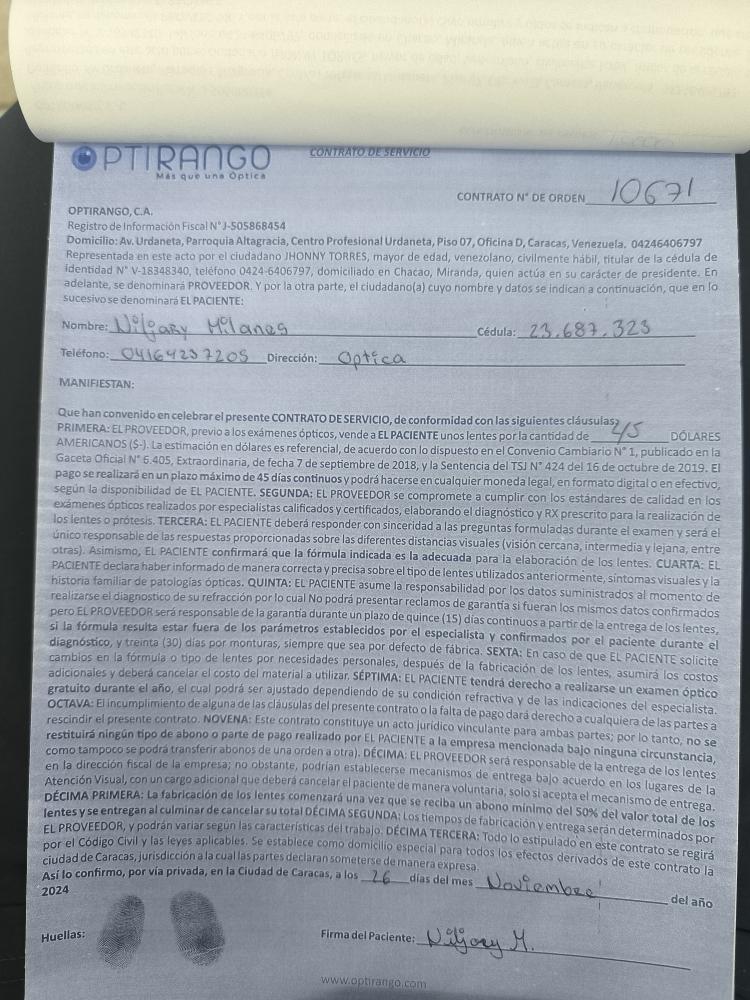 OPTIRANGO
Más que una Óptica
CONTRATO DE SERVICIO
CONTRATO N° DE ORDEN 10671
OPTIRANGO, C.A.
Registro de Información Fiscal N°J-505868454
Domicilio: Av. Urdaneta, Parroquia Altagracia, Centro Profesional Urdaneta, Piso 07, Oficina D, Caracas, Venezuela. 04246406797
Representada en este acto por el ciudadano JHONNY TORRES, mayor de edad, venezolano, civilmente hábil, titular de la cédula de
identidad N° V-18348340, teléfono 0424-6406797, domiciliado en Chacao, Miranda, quien actúa en su carácter de presidente. En
adelante, se denominará PROVEEDOR. Y por la otra parte, el ciudadano(a) cuyo nombre y datos se indican a continuación, que en lo
sucesivo se denominará EL PACIENTE:
Nombre: Niljary Milanes Cédula: 23.687.323
Teléfono: 04164237205 Dirección: Optica
MANIFIESTAN:
Que han convenido en celebrar el presente CONTRATO DE SERVICIO, de conformidad con las siguientes cláusulas:
PRIMERA: EL PROVEEDOR, previo a los exámenes ópticos, vende a EL PACIENTE unos lentes por la cantidad de DÓLARES
AMERICANOS ($-). La estimación en dólares es referencial, de acuerdo con lo dispuesto en el Convenio Cambiario N° 1, publicado en la
Gaceta Oficial N° 6.405, Extraordinaria, de fecha 7 de septiembre de 2018, y la Sentencia del TSJ N° 424 del 16 de octubre de 2019. El
pago se realizará en un plazo máximo de 45 días continuos y podrá hacerse en cualquier moneda legal, en formato digital o en efectivo,
según la disponibilidad de EL PACIENTE. SEGUNDA: EL PROVEEDOR se compromete a cumplir con los estándares de calidad en los
exámenes ópticos realizados por especialistas calificados y certificados, elaborando el diagnóstico y RX prescrito para la realización de
los lentes o prótesis. TERCERA: EL PACIENTE deberá responder con sinceridad a las preguntas formuladas durante el examen y será el
único responsable de las respuestas proporcionadas sobre las diferentes distancias visuales (visión cercana, intermedia y lejana, entre
otras). Asimismo, EL PACIENTE confirmará que la fórmula indicada es la adecuada para la elaboración de los lentes. CUARTA: EL
PACIENTE declara haber informado de manera correcta y precisa sobre el tipo de lentes utilizados anteriormente, síntomas visuales y la
historia familiar de patologías ópticas. QUINTA: EL PACIENTE asume la responsabilidad por los datos suministrados al momento de
realizarse el diagnostico de su refracción por lo cual No podrá presentar reclamos de garantía si fueran los mismos datos confirmados
pero EL PROVEEDOR será responsable de la garantía durante un plazo de quince (15) días continuos a partir de la entrega de los lentes,
si la fórmula resulta estar fuera de los parámetros establecidos por el especialista y confirmados por el paciente durante el
diagnóstico, y treinta (30) días por monturas, siempre que sea por defecto de fábrica. SEXTA: En caso de que EL PACIENTE solicite
cambios en la fórmula o tipo de lentes por necesidades personales, después de la fabricación de los lentes, asumirá los costos
adicionales y deberá cancelar el costo del material a utilizar. SÉPTIMA: EL PACIENTE tendrá derecho a realizarse un examen óptico
gratuito durante el año, el cual podrá ser ajustado dependiendo de su condición refractiva y de las indicaciones del especialista.
OCTAVA: El incumplimiento de alguna de las cláusulas del presente contrato o la falta de pago dará derecho a cualquiera de las partes a
rescindir el presente contrato. NOVENA: Este contrato constituye un acto jurídico vinculante para ambas partes; por lo tanto, no se
restituirá ningún tipo de abono o parte de pago realizado por EL PACIENTE a la empresa mencionada bajo ninguna circunstancia,
como tampoco se podrá transferir abonos de una orden a otra). DÉCIMA: EL PROVEEDOR será responsable de la entrega de los lentes
en la dirección fiscal de la empresa; no obstante, podrían establecerse mecanismos de entrega bajo acuerdo en los lugares de la
Atención Visual, con un cargo adicional que deberá cancelar el paciente de manera voluntaria, solo si acepta el mecanismo de entrega.
DÉCIMA PRIMERA: La fabricación de los lentes comenzará una vez que se reciba un abono mínimo del 50% del valor total de los
lentes y se entregan al culminar de cancelar su total DÉCIMA SEGUNDA: Los tiempos de fabricación y entrega serán determinados por
EL PROVEEDOR, y podrán variar según las características del trabajo. DÉCIMA TERCERA: Todo lo estipulado en este contrato se regirá
por el Código Civil y las leyes aplicables. Se establece como domicilio especial para todos los efectos derivados de este contrato la
ciudad de Caracas, jurisdicción a la cual las partes declaran someterse de manera expresa.
Así lo confirmo, por vía privada, en la Ciudad de Caracas, a los 26 días del mes Noviembre del año
2024
Huellas: Firma del Paciente: Niljary M.
www.optirango.com